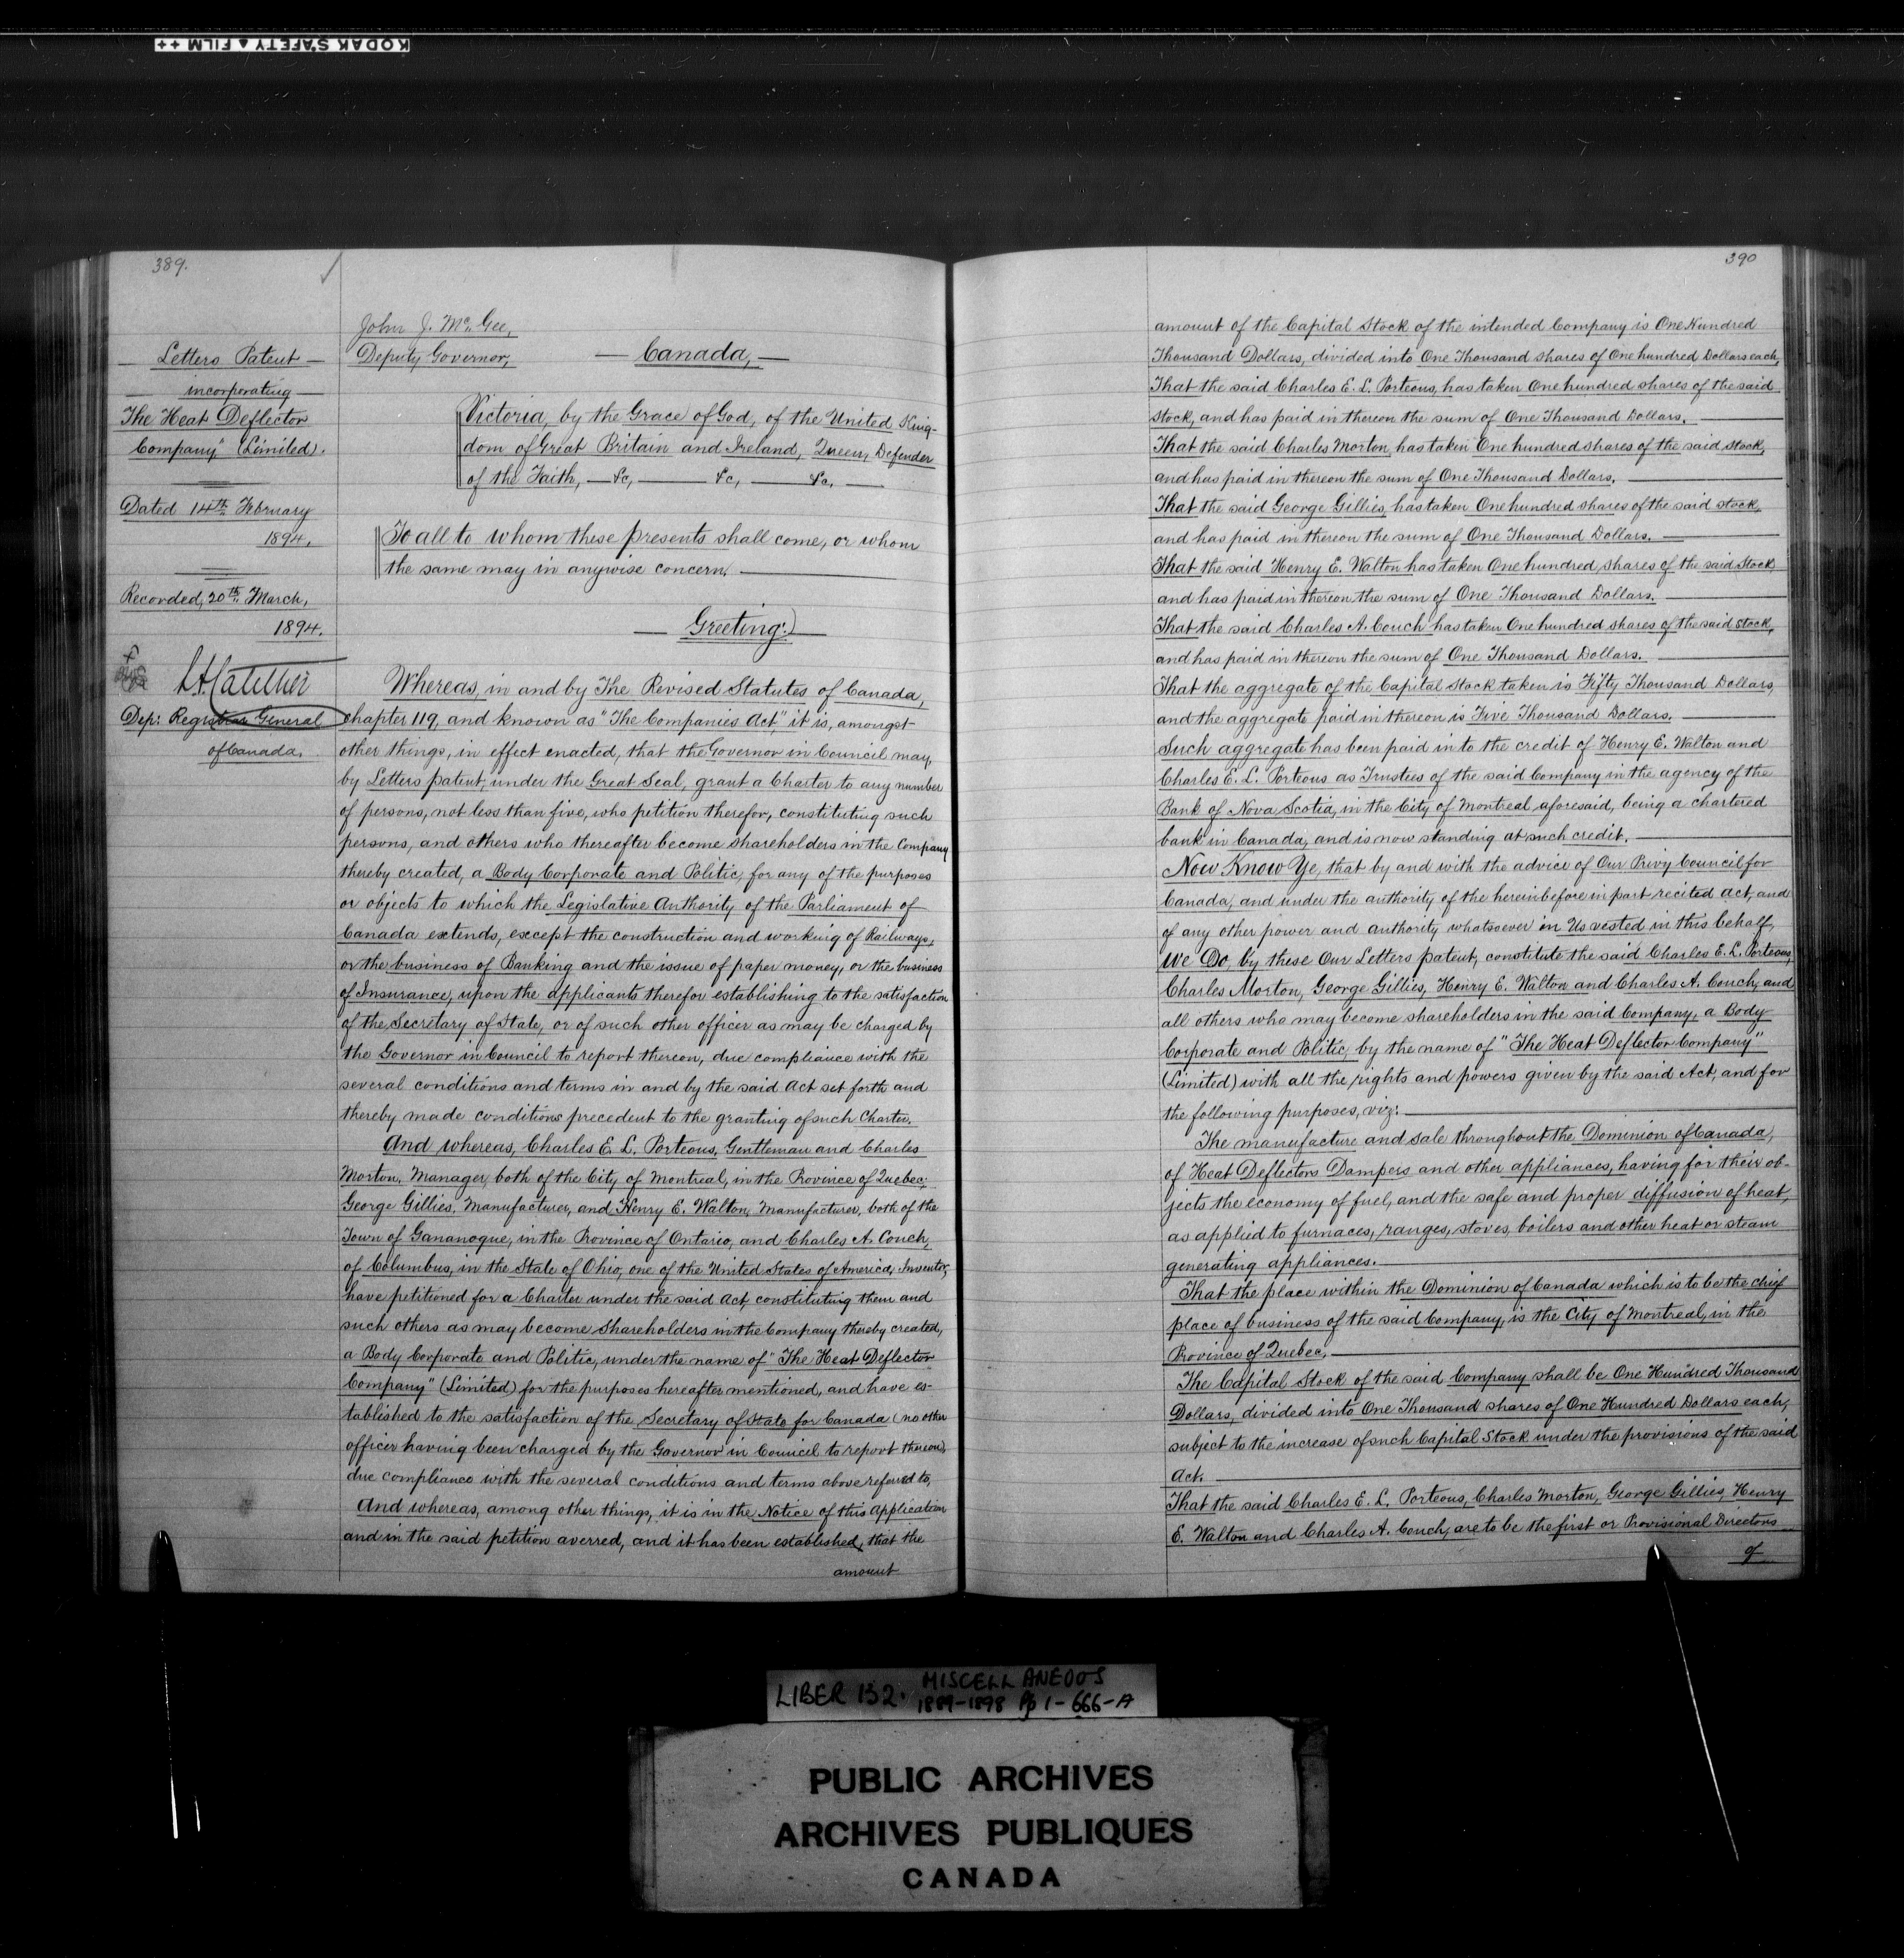 KODAK SAFETY ▲ FILM ++
389.
Letters Patent
incorporating
The Heat Deflector
Company" (Limited).
Dated 14th February
1894.
Recorded, 20th March,
1894.
Dep: Registrar General
of Canada.
John J. McGee,
Deputy Governor,
Canada,
Victoria, by the Grace of God, of the United King-
dom of Great Britain and Ireland, Queen, Defender
of the Faith, &c, &c, &c,
To all to whom these presents shall come, or whom
the same may in anywise concern,
Greeting:
Whereas, in and by The Revised Statutes of Canada,
chapter 119, and known as "The Companies Act," it is, amongst
other things, in effect enacted, that the Governor in Council may,
by Letters patent, under the Great Seal, grant a Charter to any number
of persons, not less than five, who petition therefor, constituting such
persons, and others who thereafter become shareholders in the Company
thereby created, a Body Corporate and Politic, for any of the purposes
or objects to which the Legislative Authority of the Parliament of
Canada extends, except the construction and working of Railways,
or the business of Banking and the issue of paper money, or the business
of Insurance, upon the applicants therefor establishing to the satisfaction
of the Secretary of State, or of such other officer as may be charged by
the Governor in Council to report thereon, due compliance with the
several conditions and terms in and by the said Act set forth and
thereby made conditions precedent to the granting of such Charter.
And whereas, Charles E. L. Porteous, Gentleman and Charles
Morton, Manager, both of the City of Montreal, in the Province of Quebec;
George Gillies, Manufacturer, and Henry E. Walton, Manufacturer, both of the
Town of Gananoque, in the Province of Ontario, and Charles A. Couch,
of Columbus, in the State of Ohio, one of the United States of America, Inventor,
have petitioned for a Charter under the said Act, constituting them and
such others as may become Shareholders in the Company thereby created,
a Body Corporate and Politic, under the name of "The Heat Deflector
Company" (Limited) for the purposes hereafter mentioned, and have es-
tablished to the satisfaction of the Secretary of State for Canada (no other
officer having been charged by the Governor in Council to report thereon),
due compliance with the several conditions and terms above referred to,
And whereas, among other things, it is in the Notice of this Application
and in the said petition averred, and it has been established, that the
amount
390
amount of the Capital Stock of the intended Company is One Hundred
Thousand Dollars, divided into One Thousand shares of One hundred Dollars each,
That the said Charles E. L. Porteous, has taken One hundred shares of the said
stock, and has paid in thereon the sum of One Thousand Dollars.
That the said Charles Morton, has taken One hundred shares of the said stock,
and has paid in thereon the sum of One Thousand Dollars.
That the said George Gillies, has taken One hundred shares of the said stock,
and has paid in thereon the sum of One Thousand Dollars.
That the said Henry E. Walton has taken One hundred shares of the said Stock,
and has paid in thereon the sum of One Thousand Dollars.
That the said Charles A. Couch has taken One hundred shares of the said stock,
and has paid in thereon the sum of One Thousand Dollars.
That the aggregate of the Capital Stock taken is Fifty Thousand Dollars,
and the aggregate paid in thereon is Five Thousand Dollars.
Such aggregate has been paid in to the credit of Henry E. Walton and
Charles E. L. Porteous as Trustees of the said Company in the agency of the
Bank of Nova Scotia, in the City of Montreal aforesaid, being a chartered
bank in Canada, and is now standing at such credit.
Now Know Ye, that by and with the advice of Our Privy Council for
Canada, and under the authority of the hereinbefore in part recited Act, and
of any other power and authority whatsoever in Us vested in this behalf,
We Do, by these Our Letters patent, constitute the said Charles E. L. Porteous,
Charles Morton, George Gillies, Henry E. Walton and Charles A. Couch, and
all others who may become shareholders in the said Company, a Body
Corporate and Politic, by the name of "The Heat Deflector Company"
(Limited) with all the rights and powers given by the said Act, and for
the following purposes, viz:
The manufacture and sale throughout the Dominion of Canada,
of Heat Deflectors Dampers and other appliances, having for their ob-
jects the economy of fuel, and the safe and proper diffusion of heat,
as applied to furnaces, ranges, stoves, boilers and other heat or steam
generating appliances.
That the place within the Dominion of Canada which is to be the chief
place of business of the said Company, is the City of Montreal, in the
Province of Quebec.
The Capital Stock of the said Company shall be One Hundred Thousand
Dollars, divided into One Thousand shares of One Hundred Dollars each,
subject to the increase of such Capital Stock under the provisions of the said
Act.
That the said Charles E. L. Porteous, Charles Morton, George Gillies, Henry
E. Walton and Charles A. Couch, are to be the first or Provisional Directors
of
LIBER 132. MISCELLANEOUS
1889-1898 Pp 1-666-A
PUBLIC ARCHIVES
ARCHIVES PUBLIQUES
CANADA